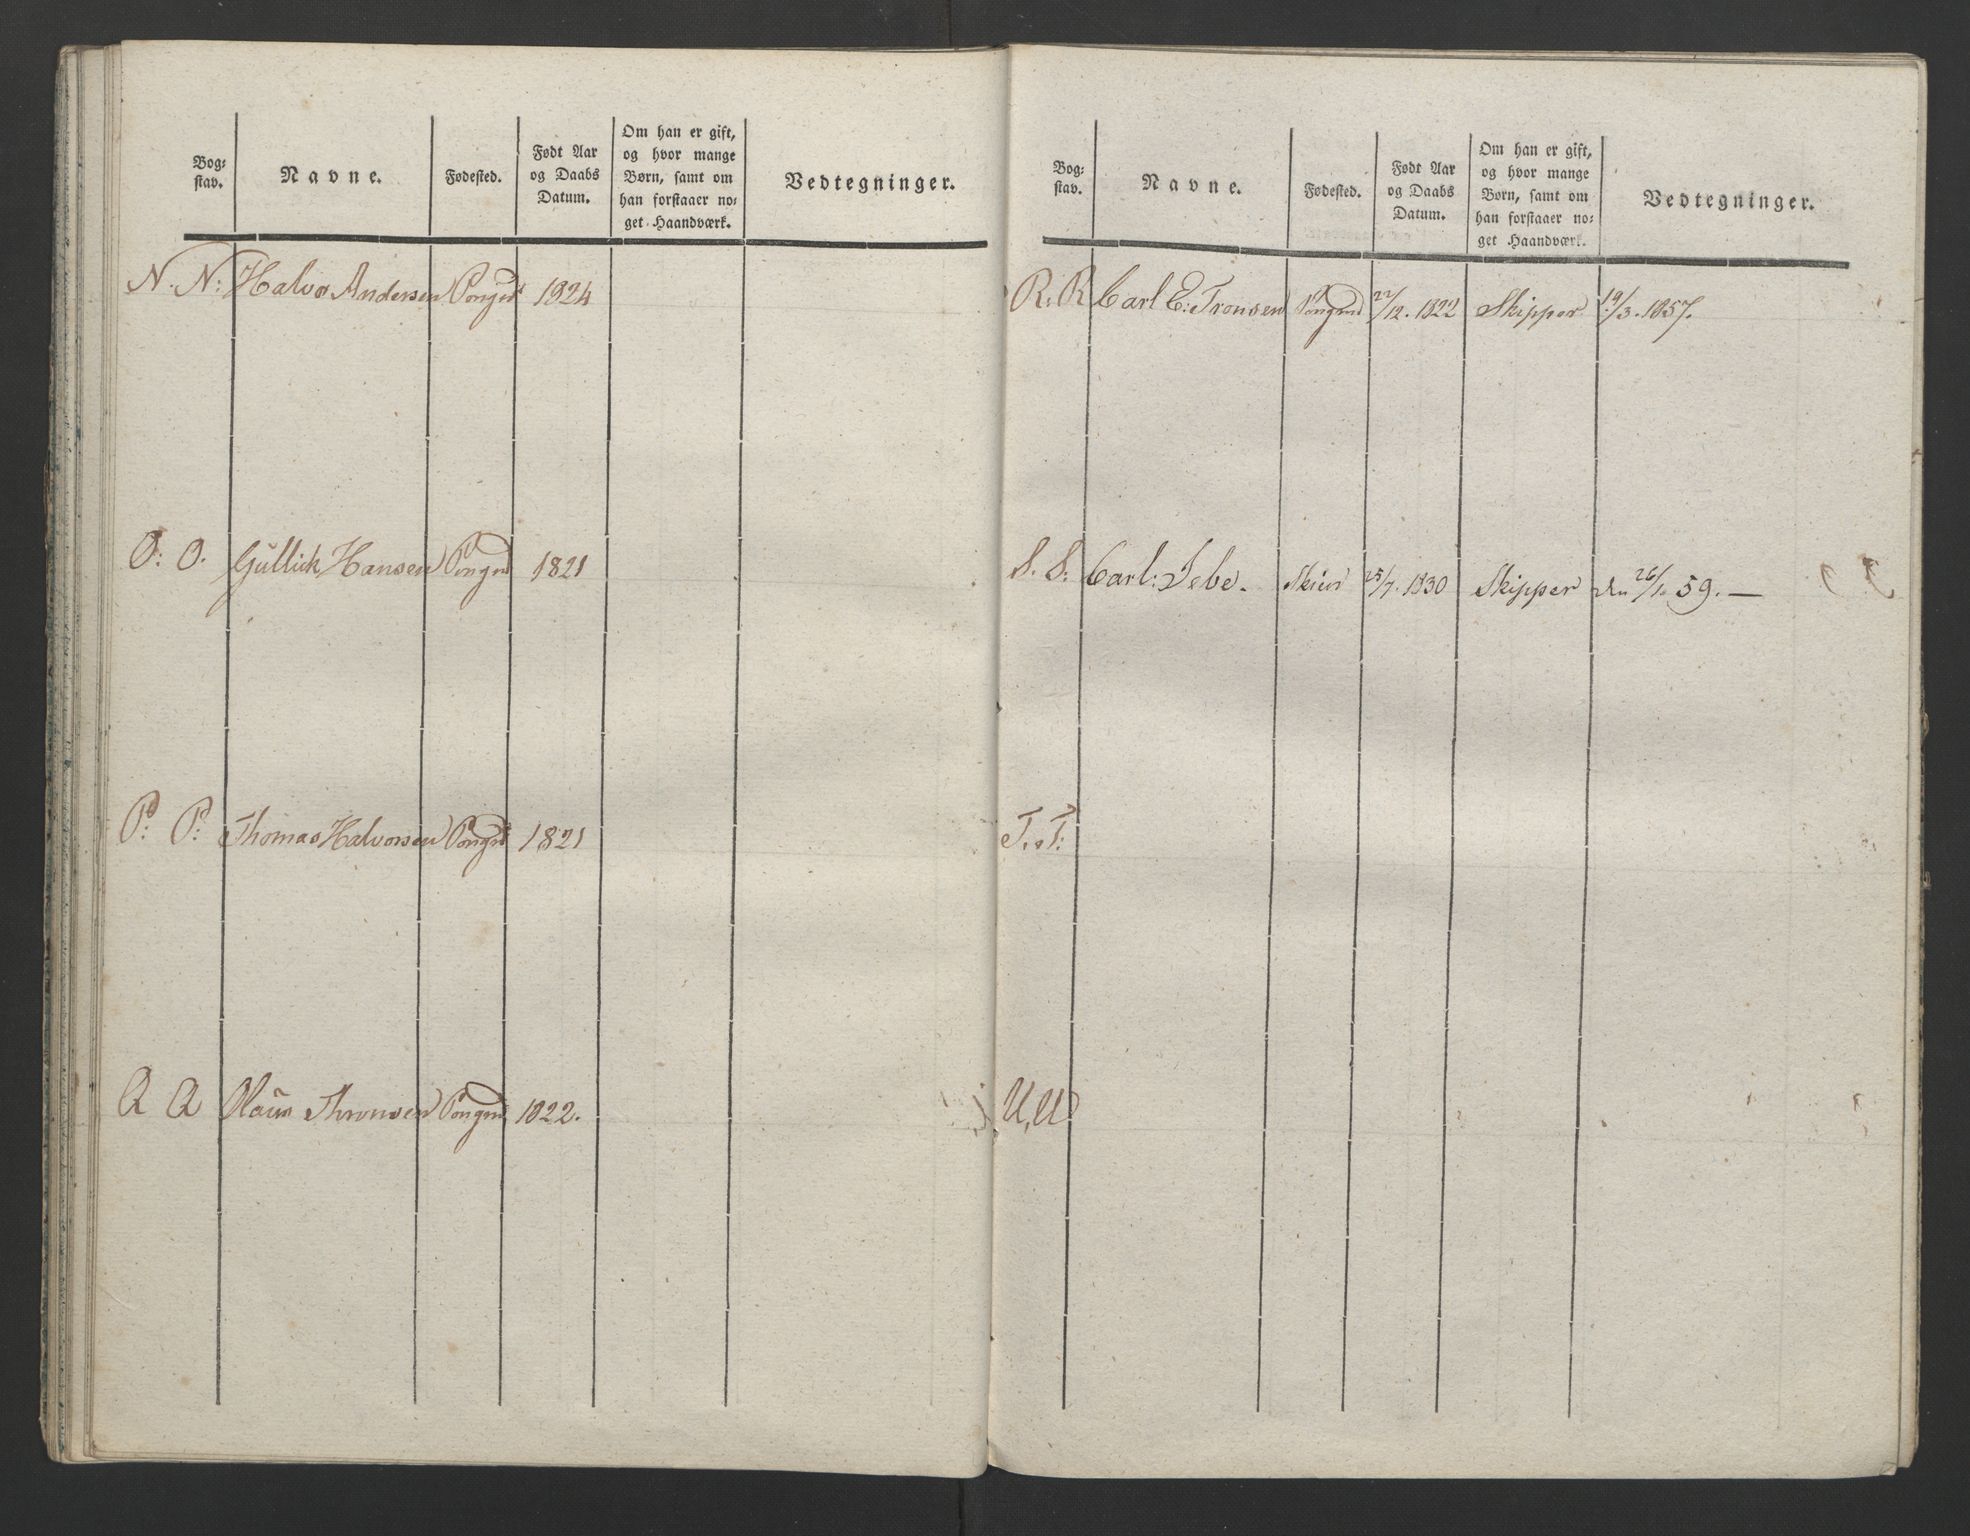 Bog-
stav.
Navne.
Fødested.
Født Aar
og Daabs
Datum.
Om han er gift,
og hvor mange
Børn, samt om
han forstaaer no-
get Haandværk.
Vedtegninger.
N. N: Halvor Andersen Porsgrd 1824
O: O. Gullick Hansen 1821
P: P: Thomas Halvorsen 1821
Q Q Olaus Thronsen 1822.
Bog-
stav.
Navne.
Fødested.
Født Aar
og Daabs
Datum.
Om han er gift,
og hvor mange
Børn, samt om
han forstaaer no-
get Haandværk.
Vedtegninger.
R: R Carl E: Tronsen 22/12. 1822 Skipper 19/3. 1857.
S. S: Carl: Jebe. Skien 25/7. 1830 Skipper den 26/1. 59. —
T. T:
U, U